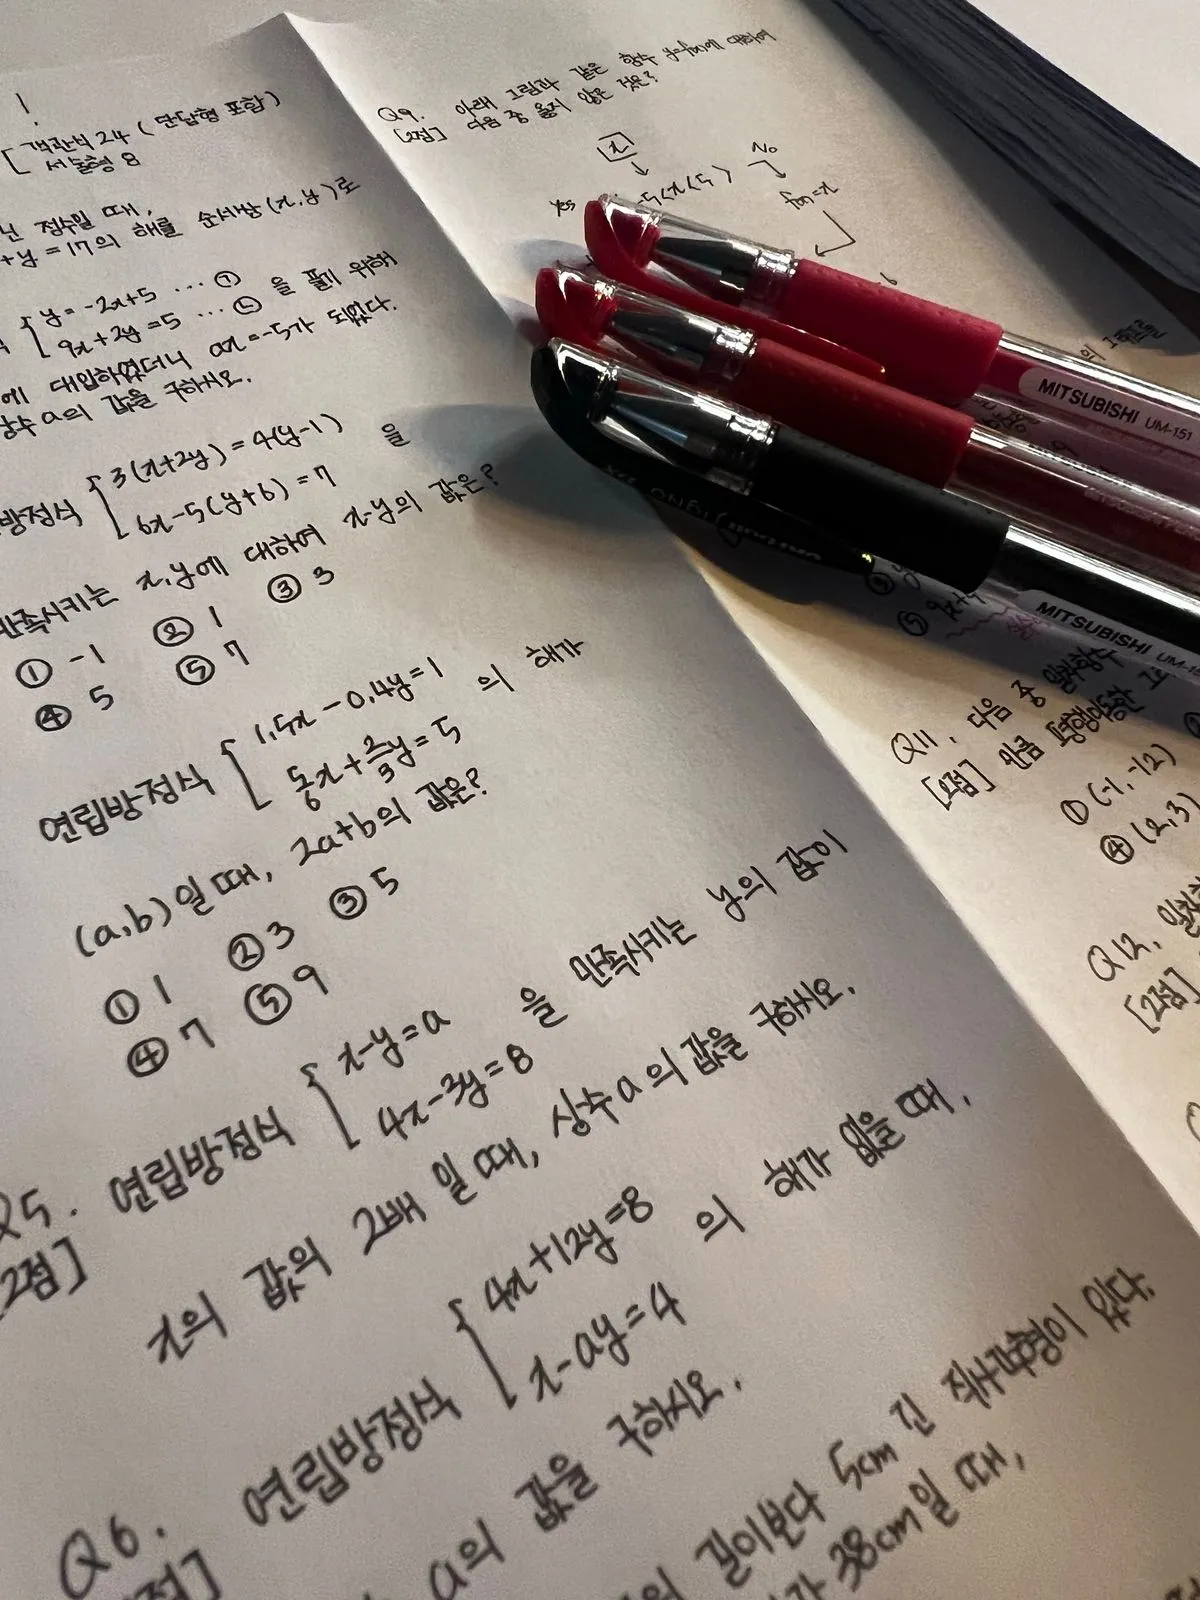 [ 객관식 24 ( 단답형 포함 )
서술형 8
닌 정수일 때,
+y=17의 해를 순서쌍 (x,y)로
{ y=-2x+5 … ㉠
9x+2y=5 … ㉡ 을 풀기 위해
에 대입하였더니 ax=-5가 되었다.
상수 a의 값을 구하시오.
방정식 { 3(x+2y)=4(y-1)
6x-5(y+6)=7 을
만족시키는 x,y에 대하여 x-y의 값은?
① -1 ② 1 ③ 3
④ 5 ⑤ 7
연립방정식 { 1.5x-0.4y=1
5/6x+2/3y=5 의 해가
(a,b)일 때, 2a+b의 값은?
① 1 ② 3 ③ 5
④ 7 ⑤ 9
Q5. 연립방정식 { x-y=a
4x-3y=8 을 만족시키는 y의 값이
[2점] x의 값의 2배 일 때, 상수 a의 값을 구하시오.
Q6. 연립방정식 { 4x+12y=8
x-ay=4 의 해가 없을 때,
점] a의 값을 구하시오.
길이보다 5cm 긴 직사각형이 있다.
가 38cm일 때,
Q9. 아래 그림과 같은 함수 y=f(x)에 대하여
[2점] 다음 중 옳지 않은 것은?
x
Yes -5<x<5 No
f(x)=x
의 그래프를
⑤ 9x+y
Q11. 다음 중 일차함수
[2점] 만큼 평행이동한 그
① (-1,-12)
④ (2,3)
Q12. 일차
[2점]
MITSUBISHI UM-151
MITSUBISHI UM-1
uni-ball Signo